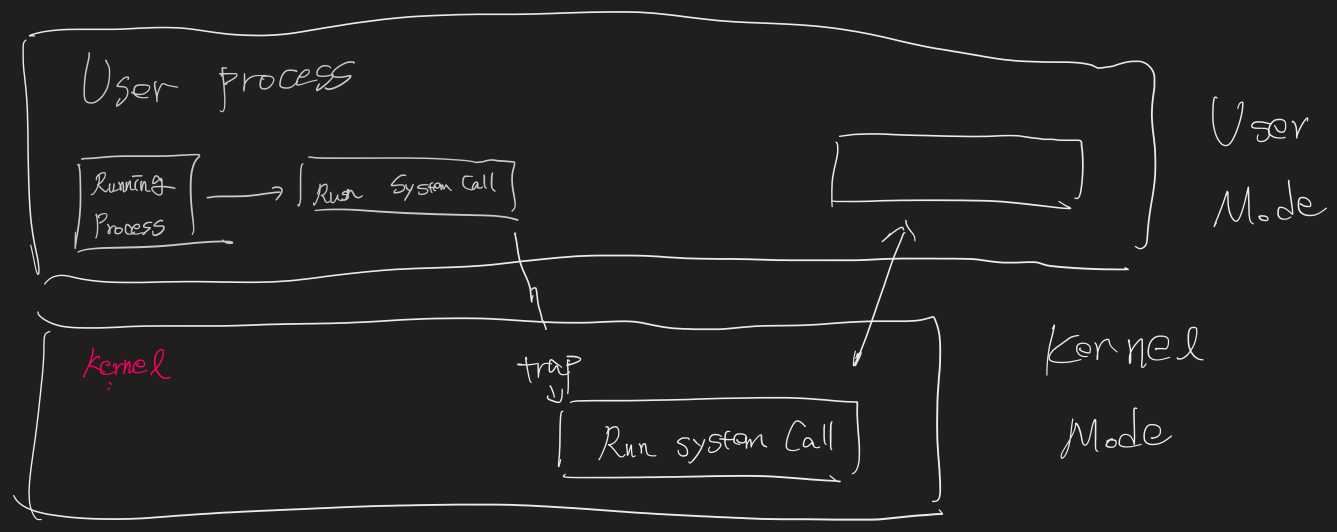 User process
Running
Process
Run System Call
User
Mode
Kernel
trap
Run system Call
Kernel
Mode